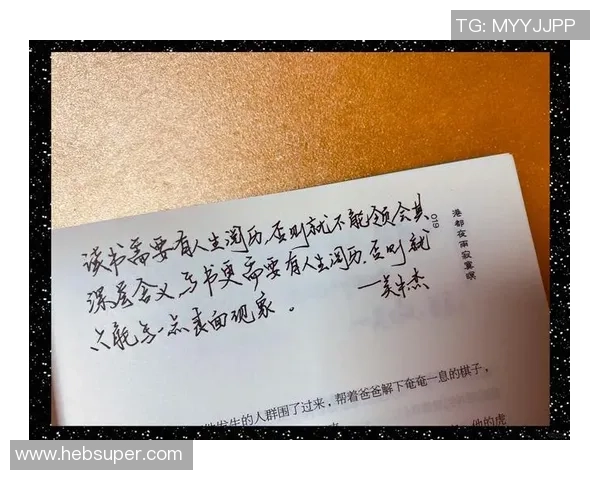 TG: MYYJJPP
读书需要有人生阅历,否则就不能领会其
深层含义,写书更需要有人生阅历,否则就
只能写一点表面现象。
杰
019
港都夜雨寂寞暝
发生的人群围了过来，帮着爸爸解下奄奄一息的棋子，
他的虎
www.hebsuper.com